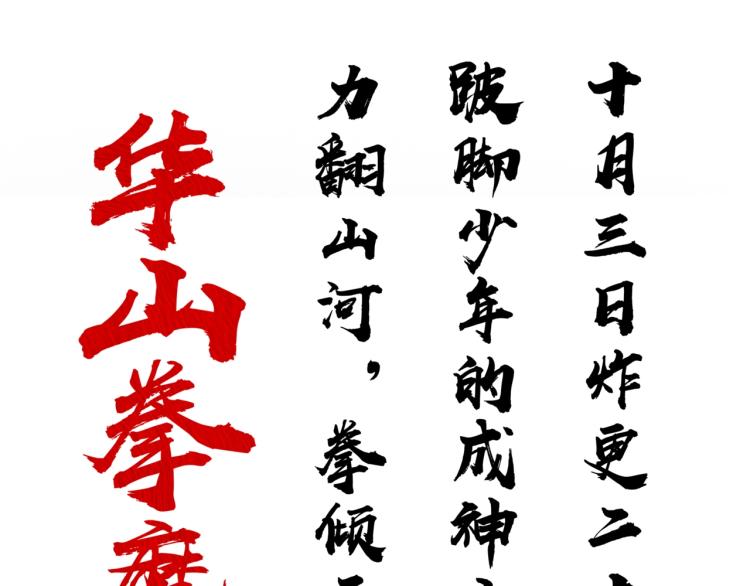 十月三日炸更二
跛脚少年的成神
力翻山河，拳倾
华山拳